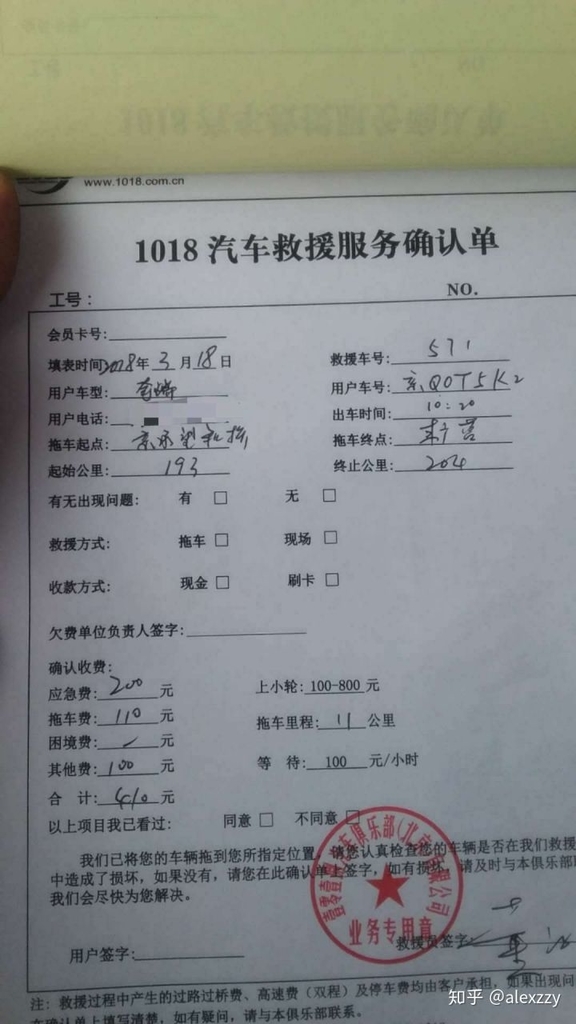 www.1018.com.cn
1018 汽车救援服务确认单
工号: NO.
会员卡号:
填表时间 2018年 3 月 18 日 救援车号: 571
用户车型: 用户车号: 京Q0T5K2
用户电话: 出车时间: 10:20
拖车起点: 京承 拖车终点: 来广营
起始公里: 193 终止公里: 204
有无出现问题: 有 □ 无 □
救援方式: 拖车 □ 现场 □
收款方式: 现金 □ 刷卡 □
欠费单位负责人签字:
确认收费:
应急费: 200 元 上小轮: 100-800 元
拖车费: 110 元 拖车里程: 11 公里
困境费: 元
其他费: 100 元 等 待: 100 元/小时
合 计: 410 元
以上项目我已看过: 同意 □ 不同意 □
我们已将您的车辆拖到您所指定位置,请您认真检查您的车辆是否在我们救援
中造成了损坏,如果没有,请您在此确认单上签字,如有损坏,请及时与本俱乐部联
我们会尽快为您解决。
业务专用章
用户签字: 救援员签字:
注: 救援过程中产生的过路过桥费、高速费(双程)及停车费均由客户承担,如果出现问
在确认单上填写清楚,如有疑问,请与本俱乐部联系。
知乎 @alexzzy